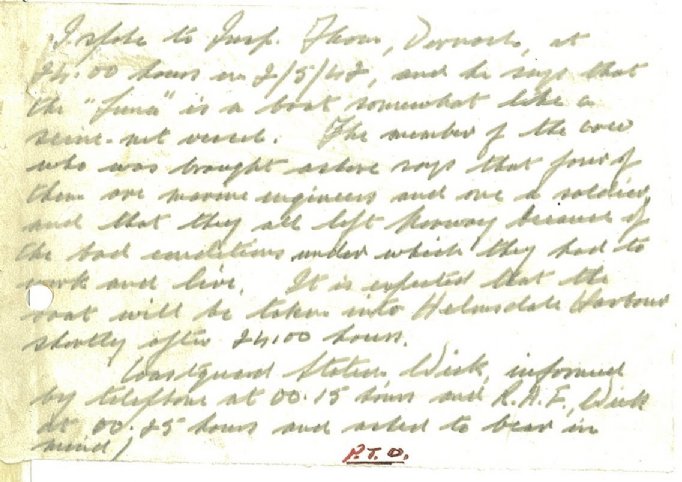 I spoke to Insp. Thom, Dornoch, at
24.00 hours on 2/5/42, and he says that
the "Luna" is a boat somewhat like a
seine-net vessel. The member of the crew
who was brought ashore says that four of
them are marine engineers and one a soldier,
and that they all left Norway because of
the bad conditions under which they had to
work and live. It is expected that the
boat will be taken into Helmsdale Harbour
shortly after 24.00 hours.
Coastguard Station, Wick, informed
by telephone at 00.15 hours and R.A.F., Wick
at 00.25 hours and asked to bear in
mind,
P.T.O.